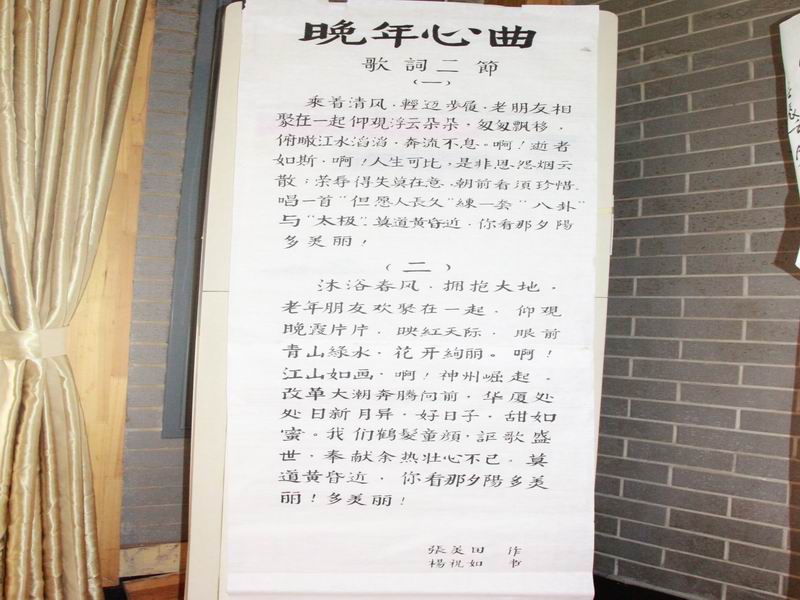 晚年心曲
歌詞二節
(一)
乘着清风，輕迈步履，老朋友相
聚在一起仰观浮云朵朵，匆匆飘移，
俯瞰江水滔滔，奔流不息。啊！逝者
如斯，啊！人生可比，是非恩怨烟云
散；荣辱得失莫在意，朝前看須珍惜，
唱一首"但愿人長久"練一套"八卦"
与"太极"，莫道黄昏近，你看那夕陽
多美丽！
(二)
沐浴春风，拥抱大地，
老年朋友欢聚在一起，仰观
晚霞片片，映紅天际，眼前
青山綠水，花开绚丽。啊！
江山如画，啊！神州崛起，
改革大潮奔騰向前，华厦处
处日新月异，好日子，甜如
蜜。我们鶴髮童顏，謳歌盛
世，奉献余热壮心不已，莫
道黄昏近，你看那夕陽多美
丽！多美丽！
張美田 作
楊祝如 书